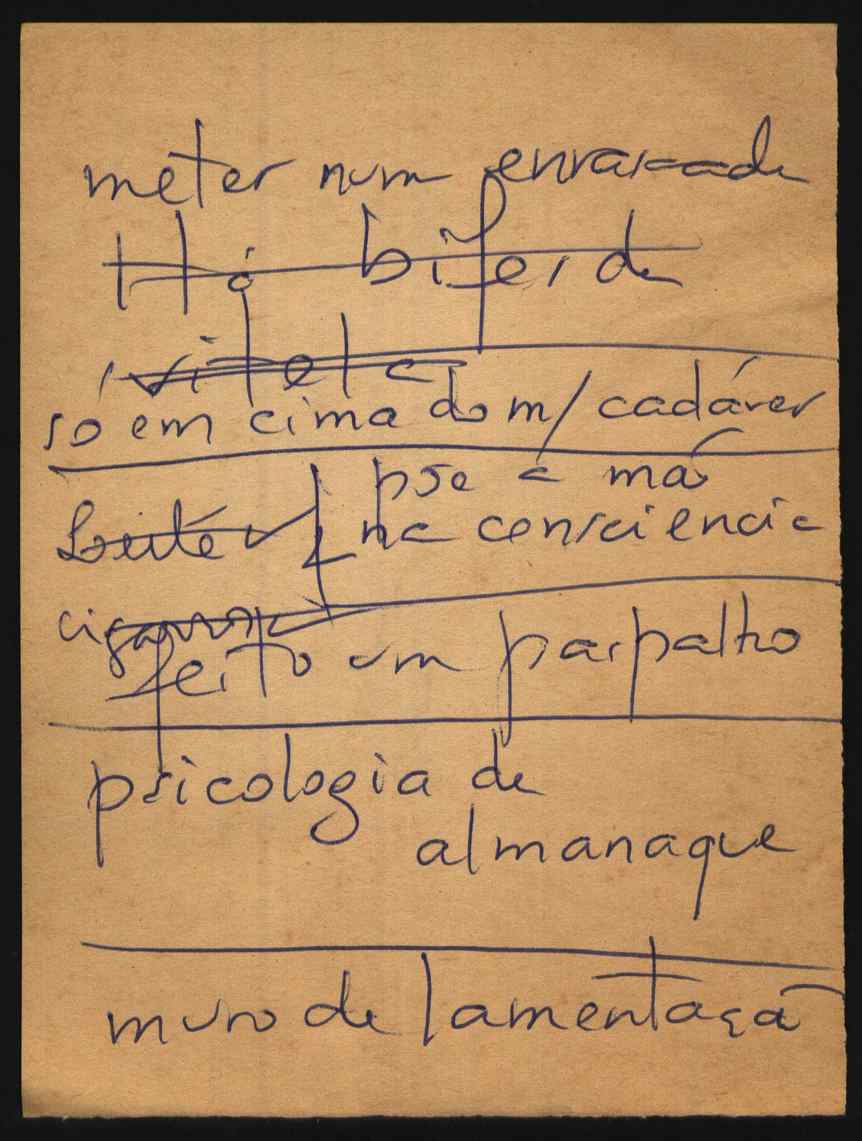 meter num
Há bifes de
vitela
só em cima do m/ cadáver
pse a mã
Leite na consciencia
cigarros
feito um paspalho
psicologia de
almanaque
muro de lamentaçã